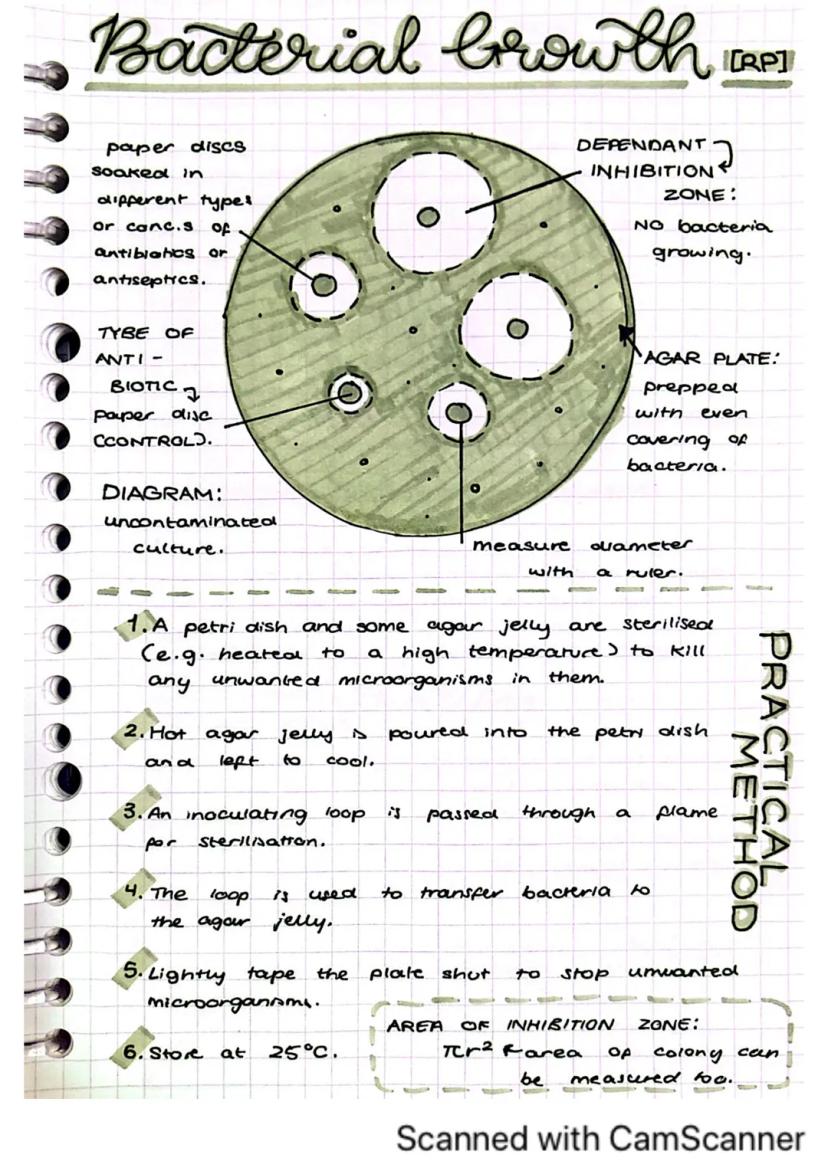 Bacterial Growth [RP]
paper discs
soaked in
different types
or conc.s of
antibiotics or
antiseptics.
TYBE OF
ANTI -
BIOTIC
paper disc
(CONTROL).
DIAGRAM:
uncontaminated
culture.
DEPENDANT
INHIBITION
ZONE:
NO bacteria
growing.
AGAR PLATE:
prepped
with even
covering of
bacteria.
measure diameter
with a ruler.
PRACTICAL
METHOD
1. A petri dish and some agar jelly are sterilised
(e.g. heated to a high temperature) to kill
any unwanted microorganisms in them.
2. Hot agar jelly is poured into the petri dish
and left to cool.
3. An inoculating loop is passed through a flame
for sterilisation.
4. The loop is used to transfer bacteria to
the agar jelly.
5. Lightly tape the plate shut to stop unwanted
microorganisms.
6. Store at 25°C.
AREA OF INHIBITION ZONE:
πr² ← area of colony can
be measured too.
Scanned with CamScanner